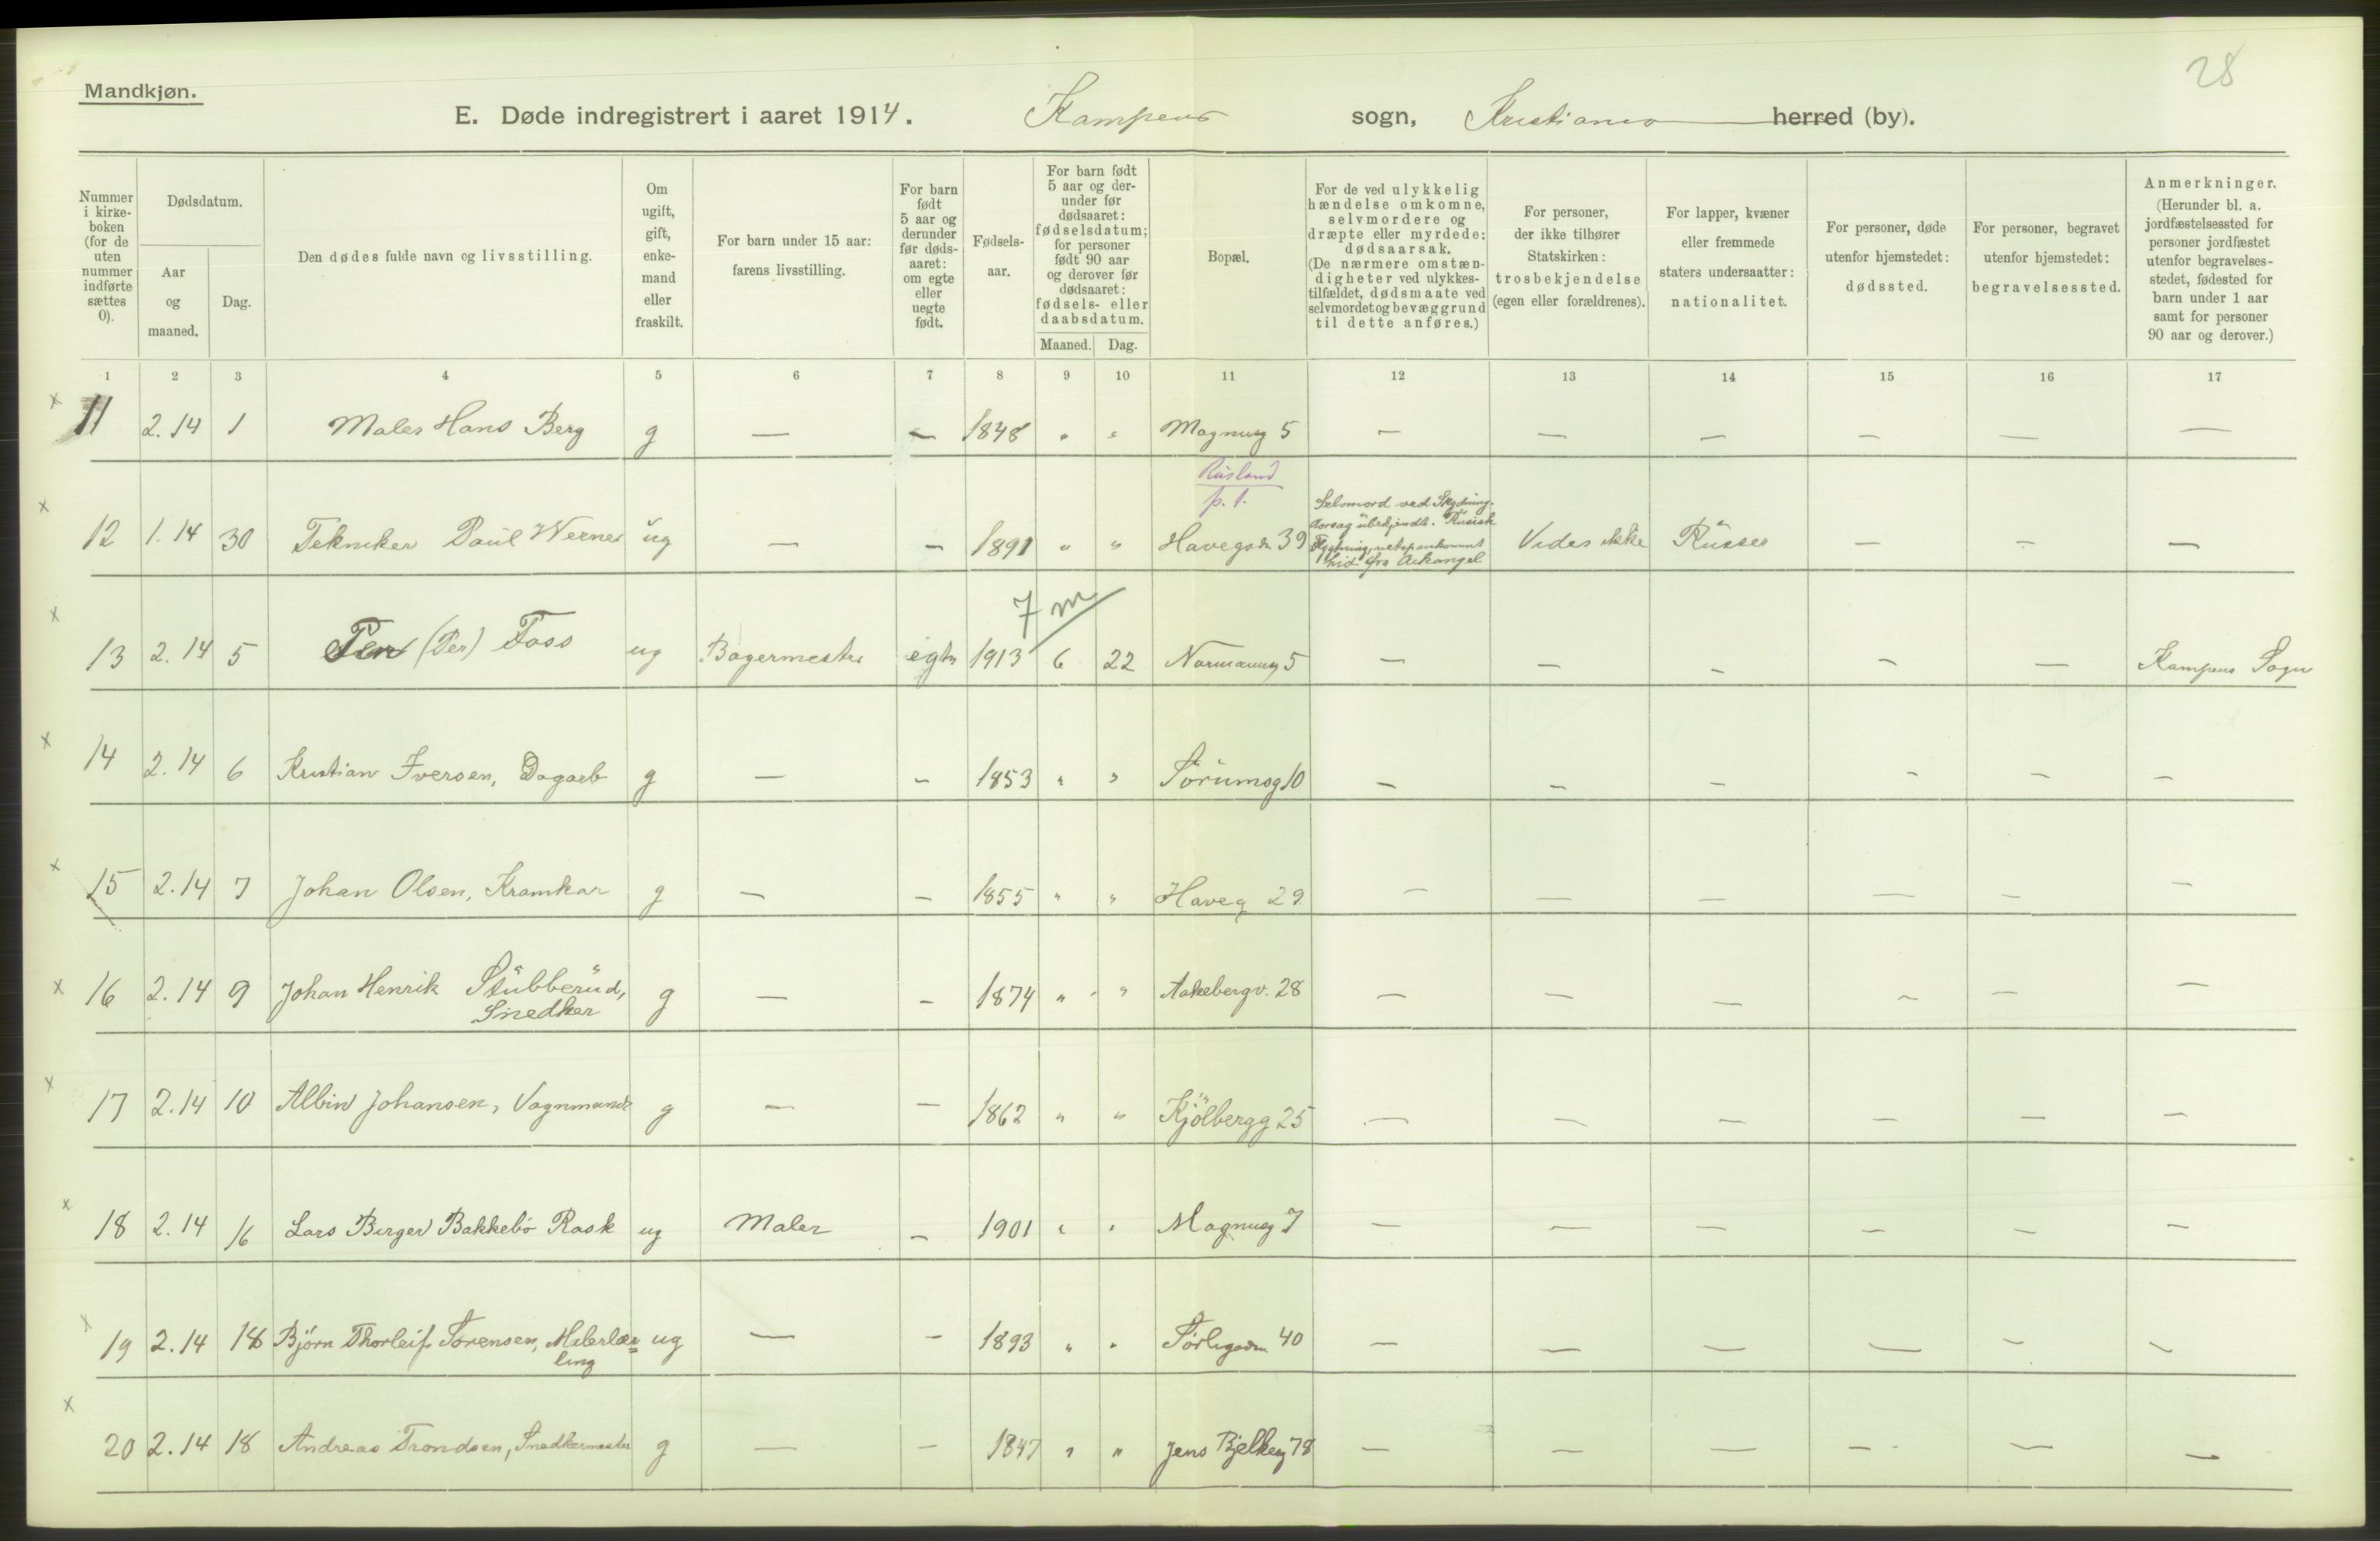 28
Mandkjøn.
E. Døde indregistrert i aaret 1914. Kampens sogn, Kristiania herred (by).
Nummer i kirke-boken (for de uten nummer indførte sættes 0).
Dødsdatum.
Aar og maaned.
Dag.
Den dødes fulde navn og livsstilling.
Om ugift, gift, enke-mand eller fraskilt.
For barn under 15 aar: farens livsstilling.
For barn født 5 aar og derunder før døds-aaret: om egte eller uegte født.
Fødsels-aar.
For barn født 5 aar og der-under før dødsaaret: fødselsdatum; for personer født 90 aar og derover før dødsaaret: fødsels- eller daabsdatum.
Maaned. Dag.
Bopæl.
For de ved ulykkelig hændelse omkomne, selvmordere og dræpte eller myrdede: dødsaarsak. (De nærmere omstæn-digheter ved ulykkes-tilfældet, dødsmaate ved selvmordet og bevæggrund til dette anføres.)
For personer, der ikke tilhører Statskirken: trosbekjendelse (egen eller forældrenes).
For lapper, kvæner eller fremmede staters undersaatter: nationalitet.
For personer, døde utenfor hjemstedet: dødssted.
For personer, begravet utenfor hjemstedet: begravelsessted.
Anmerkninger. (Herunder bl. a. jordfæstelsessted for personer jordfæstet utenfor begravelses-stedet, fødested for barn under 1 aar samt for personer 90 aar og derover.)
1 2 3 4 5 6 7 8 9 10 11 12 13 14 15 16 17
x 11 2.14 1 Maler Hans Berg g — — 1848 " " Magnusg 5 — — — — — —
Rusland
p.t.
x 12 1.14 30 Tekniker Paul Werner ug — — 1891 " " Havegadn 39 Selvmord ved Skydning. Aarsag ubekjendt. Russisk Flygtning, netop ankommet hid fra Arkangel Vides ikke Russer — — —
7 m
x 13 2.14 5 Per (Per) Foss ug Bagermester egte 1913 6 22 Normannsg 5 — — — — — Kampens Sogn
x 14 2.14 6 Kristian Iversen, Dagarb g — — 1853 " " Sørumsg 10 — — — — — —
x 15 2.14 7 Johan Olsen, Kramkar g — — 1855 " " Haveg 29 — — — — — —
x 16 2.14 9 Johan Henrik Stubberud, Snedker g — — 1874 " " Aakebergv. 28 — — — — — —
x 17 2.14 10 Albin Johansen, Vognmand g — — 1862 " " Kjölbergg 25 — — — — — —
x 18 2.14 16 Lars Birger Bakkebø Rask ug Maler — 1901 " " Magnusg 7 — — — — — —
x 19 2.14 18 Björn Thorleif Sørensen, Malerlær=ling ug — — 1893 " " Sørligadn 40 — — — — — —
x 20 2.14 18 Andreas Trondsen, Snedkermester g — — 1847 " " Jens Bjelkesg 78 — — — — — —